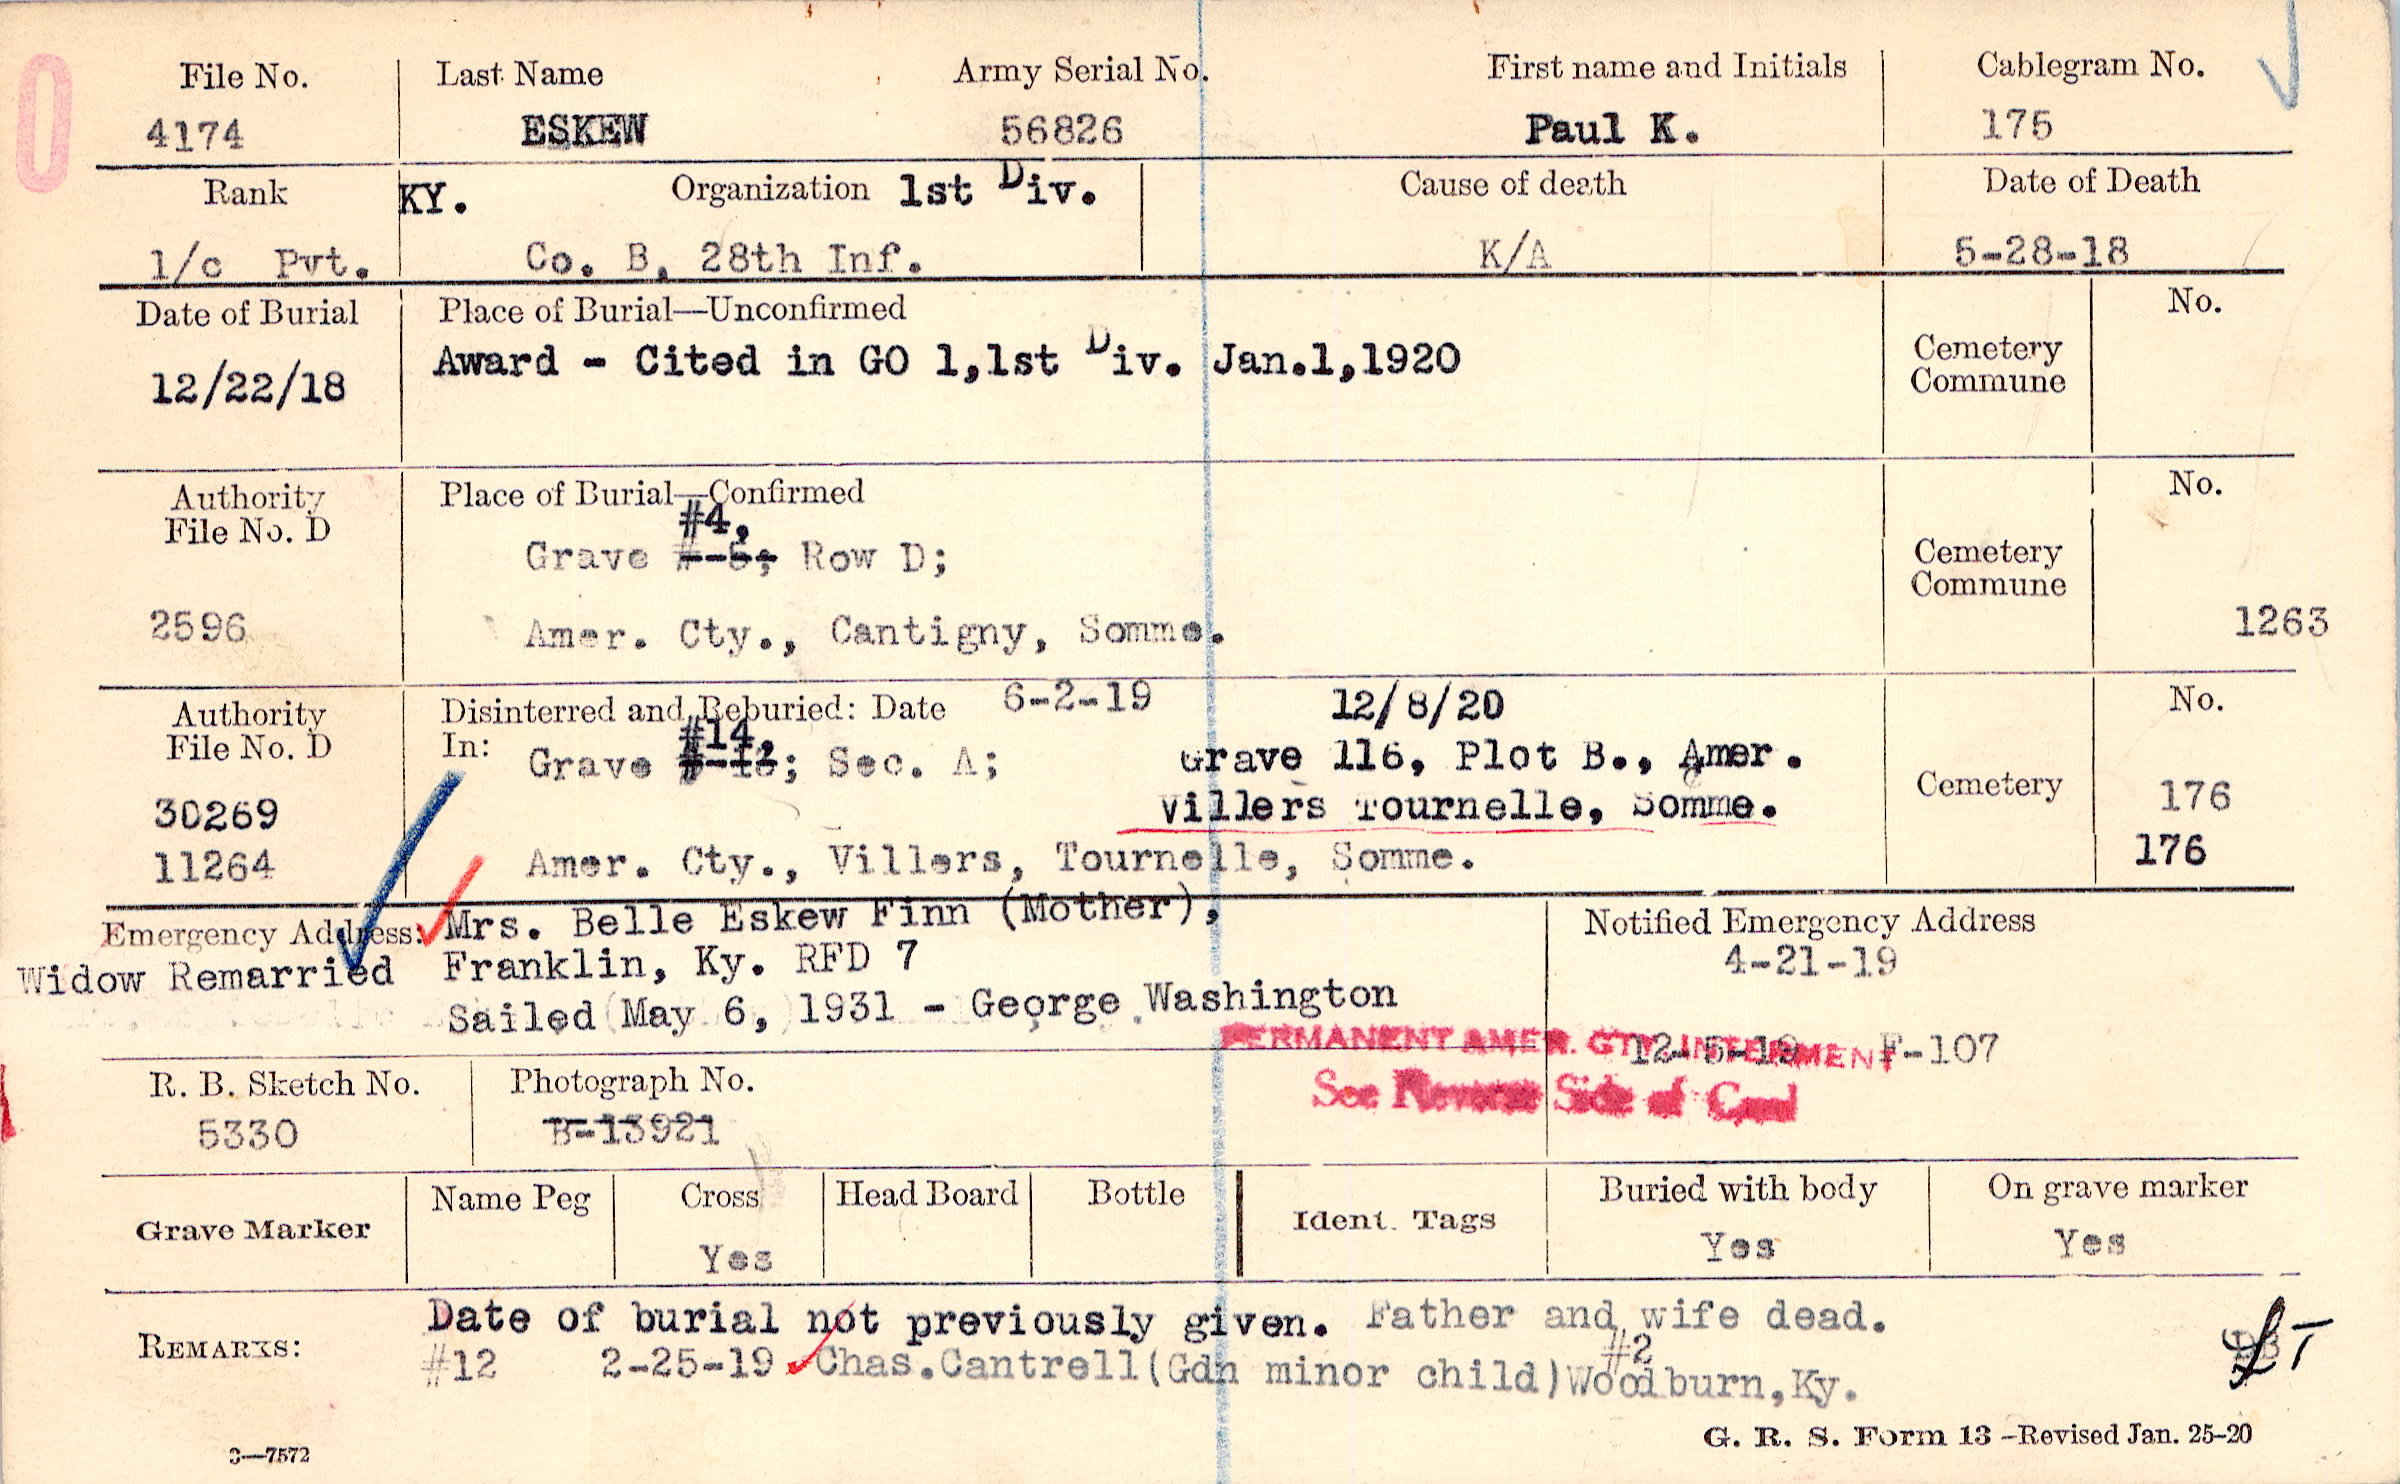 File No. Last Name Army Serial No. First name and Initials Cablegram No.
4174 ESKEW 56826 Paul K. 175
Rank KY. Organization 1st Div. Cause of death Date of Death
1/c Pvt. Co. B, 28th Inf. K/A 5-28-18
Date of Burial Place of Burial—Unconfirmed No.
12/22/18 Award - Cited in GO 1,1st Div. Jan.1,1920 Cemetery
Commune
Authority Place of Burial—Confirmed No.
File No. D #4,
Grave Row D; Cemetery
Commune
2596 Amer. Cty., Cantigny, Somme. 1263
Authority Disinterred and Reburied: Date 6-2-19 12/8/20 No.
File No. D In: #14,
Grave ; Sec. A; Grave 116, Plot B., Amer.
30269 Villers Tournelle, Somme. Cemetery 176
11264 Amer. Cty., Villers, Tournelle, Somme. 176
Emergency Address: Mrs. Belle Eskew Finn (Mother), Notified Emergency Address
Widow Remarried Franklin, Ky. RFD 7 4-21-19
Sailed May 6, 1931 - George Washington
PERMANENT AMER. CTY. INTERMENT 12-5-19 F-107
See Reverse Side of Card
R. B. Sketch No. Photograph No.
5330 B-13921
Grave Marker Name Peg Cross Head Board Bottle Ident. Tags Buried with body On grave marker
Yes Yes Yes
REMARKS: Date of burial not previously given. Father and wife dead.
#2
#12 2-25-19 Chas.Cantrell(Gdn minor child)Woodburn,Ky.
3—7572 G. R. S. Form 13 –Revised Jan. 25–20